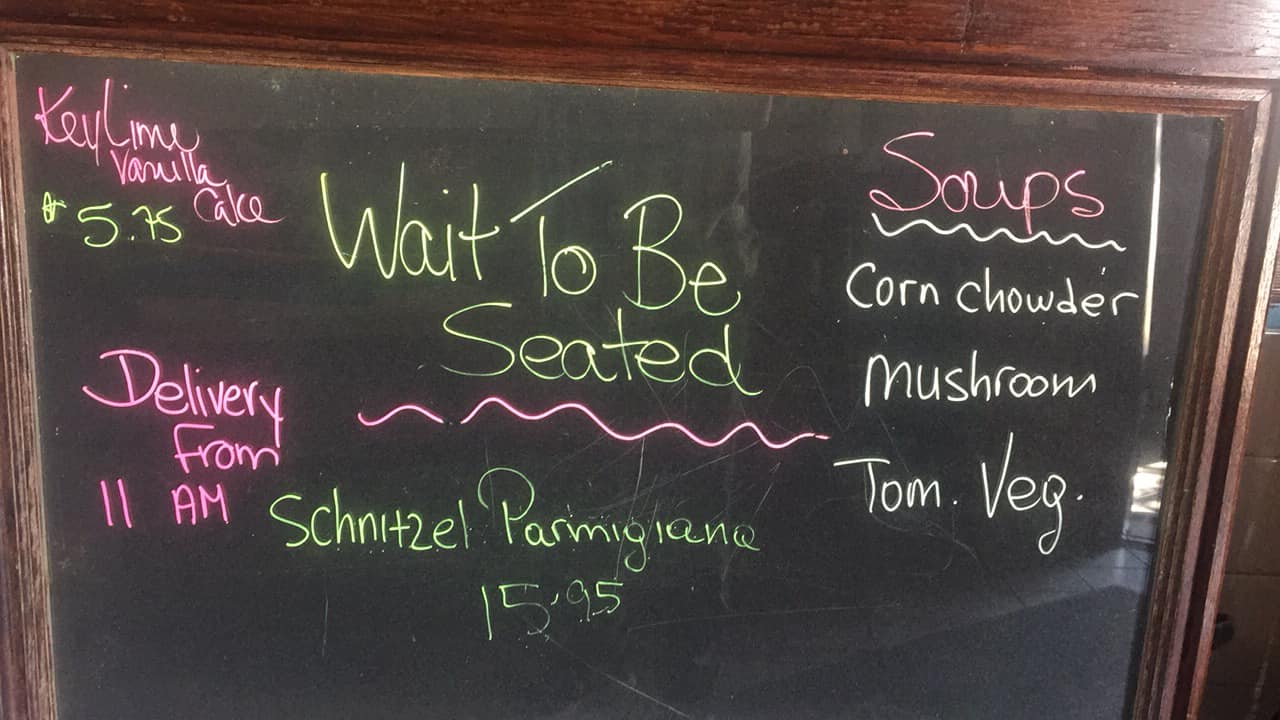 Key Lime
Vanilla
Cake
$5.75
Wait To Be
Seated
Delivery
From
11 AM
Schnitzel Parmigiana
15.95
Soups
Corn Chowder
Mushroom
Tom. Veg.